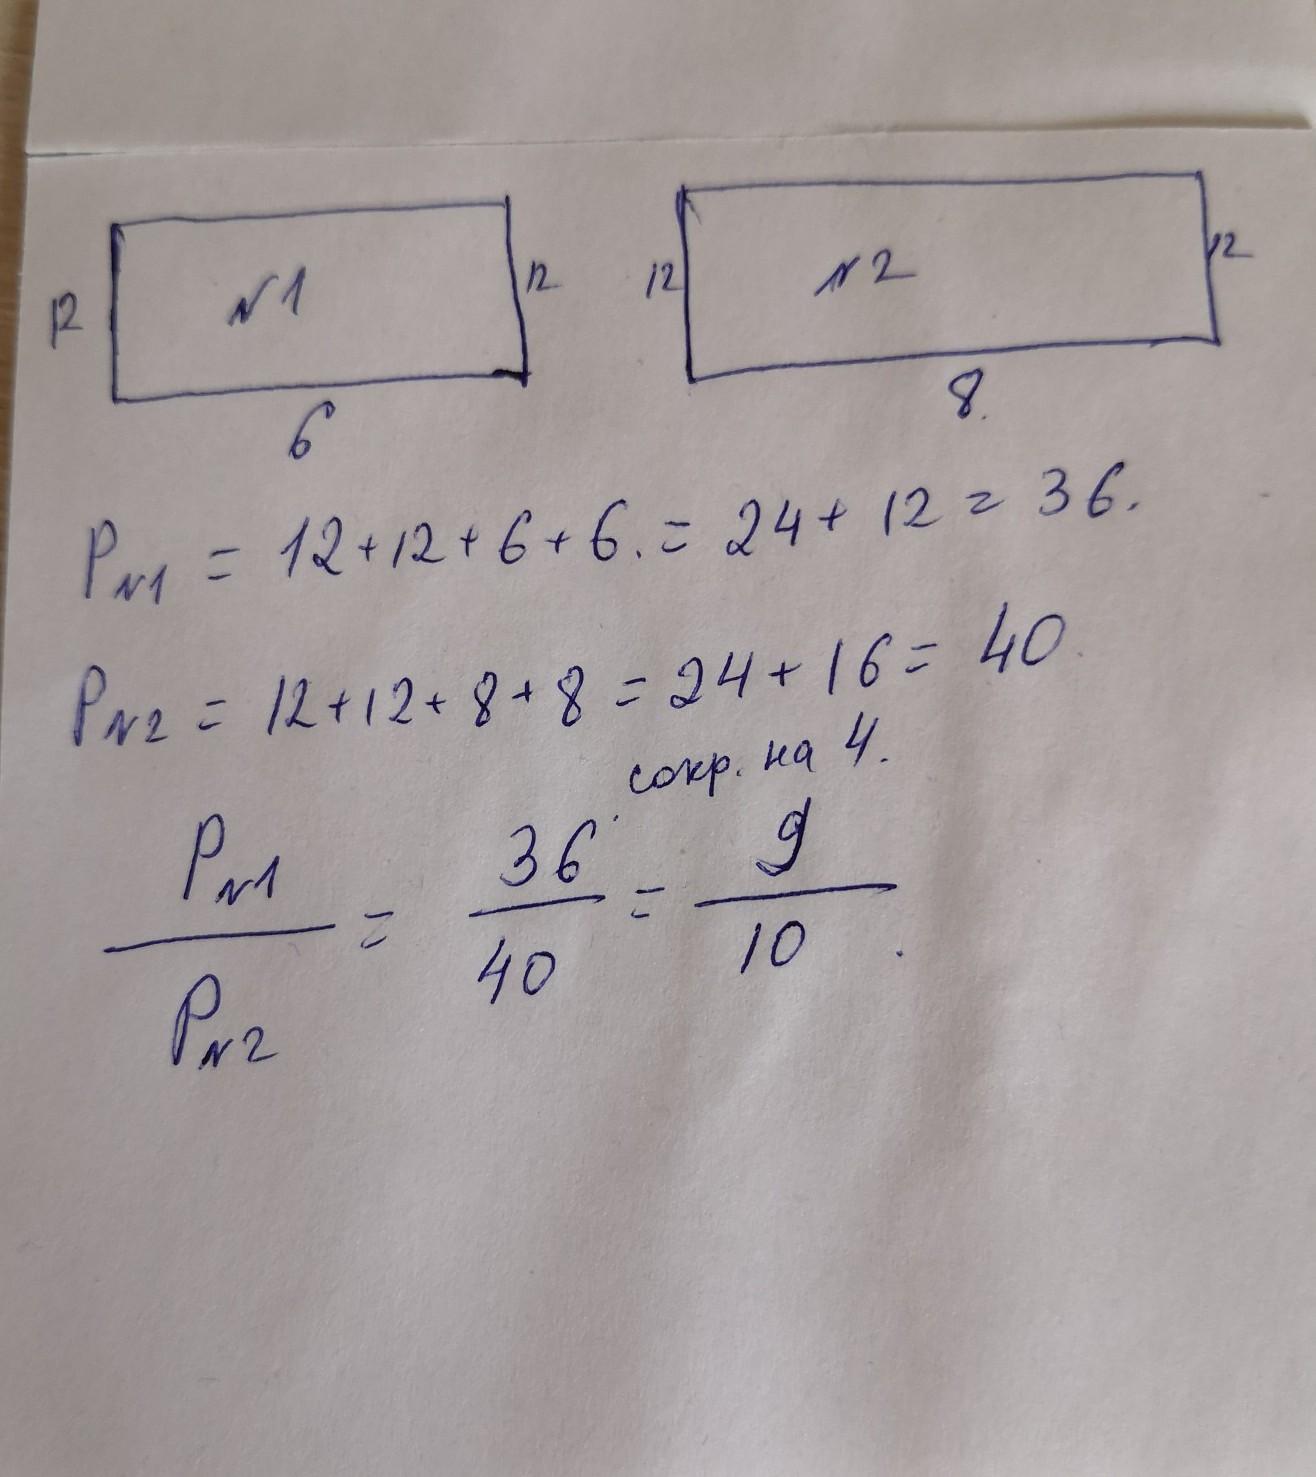 N1
N2
12
12
12
12
6
8.
P N1 = 12+12+6+6. = 24+12 = 36.
P N2 = 12+12+8+8 = 24+16 = 40
сокр. на 4.
P N1 / P N2 = 36 / 40 = 9 / 10.